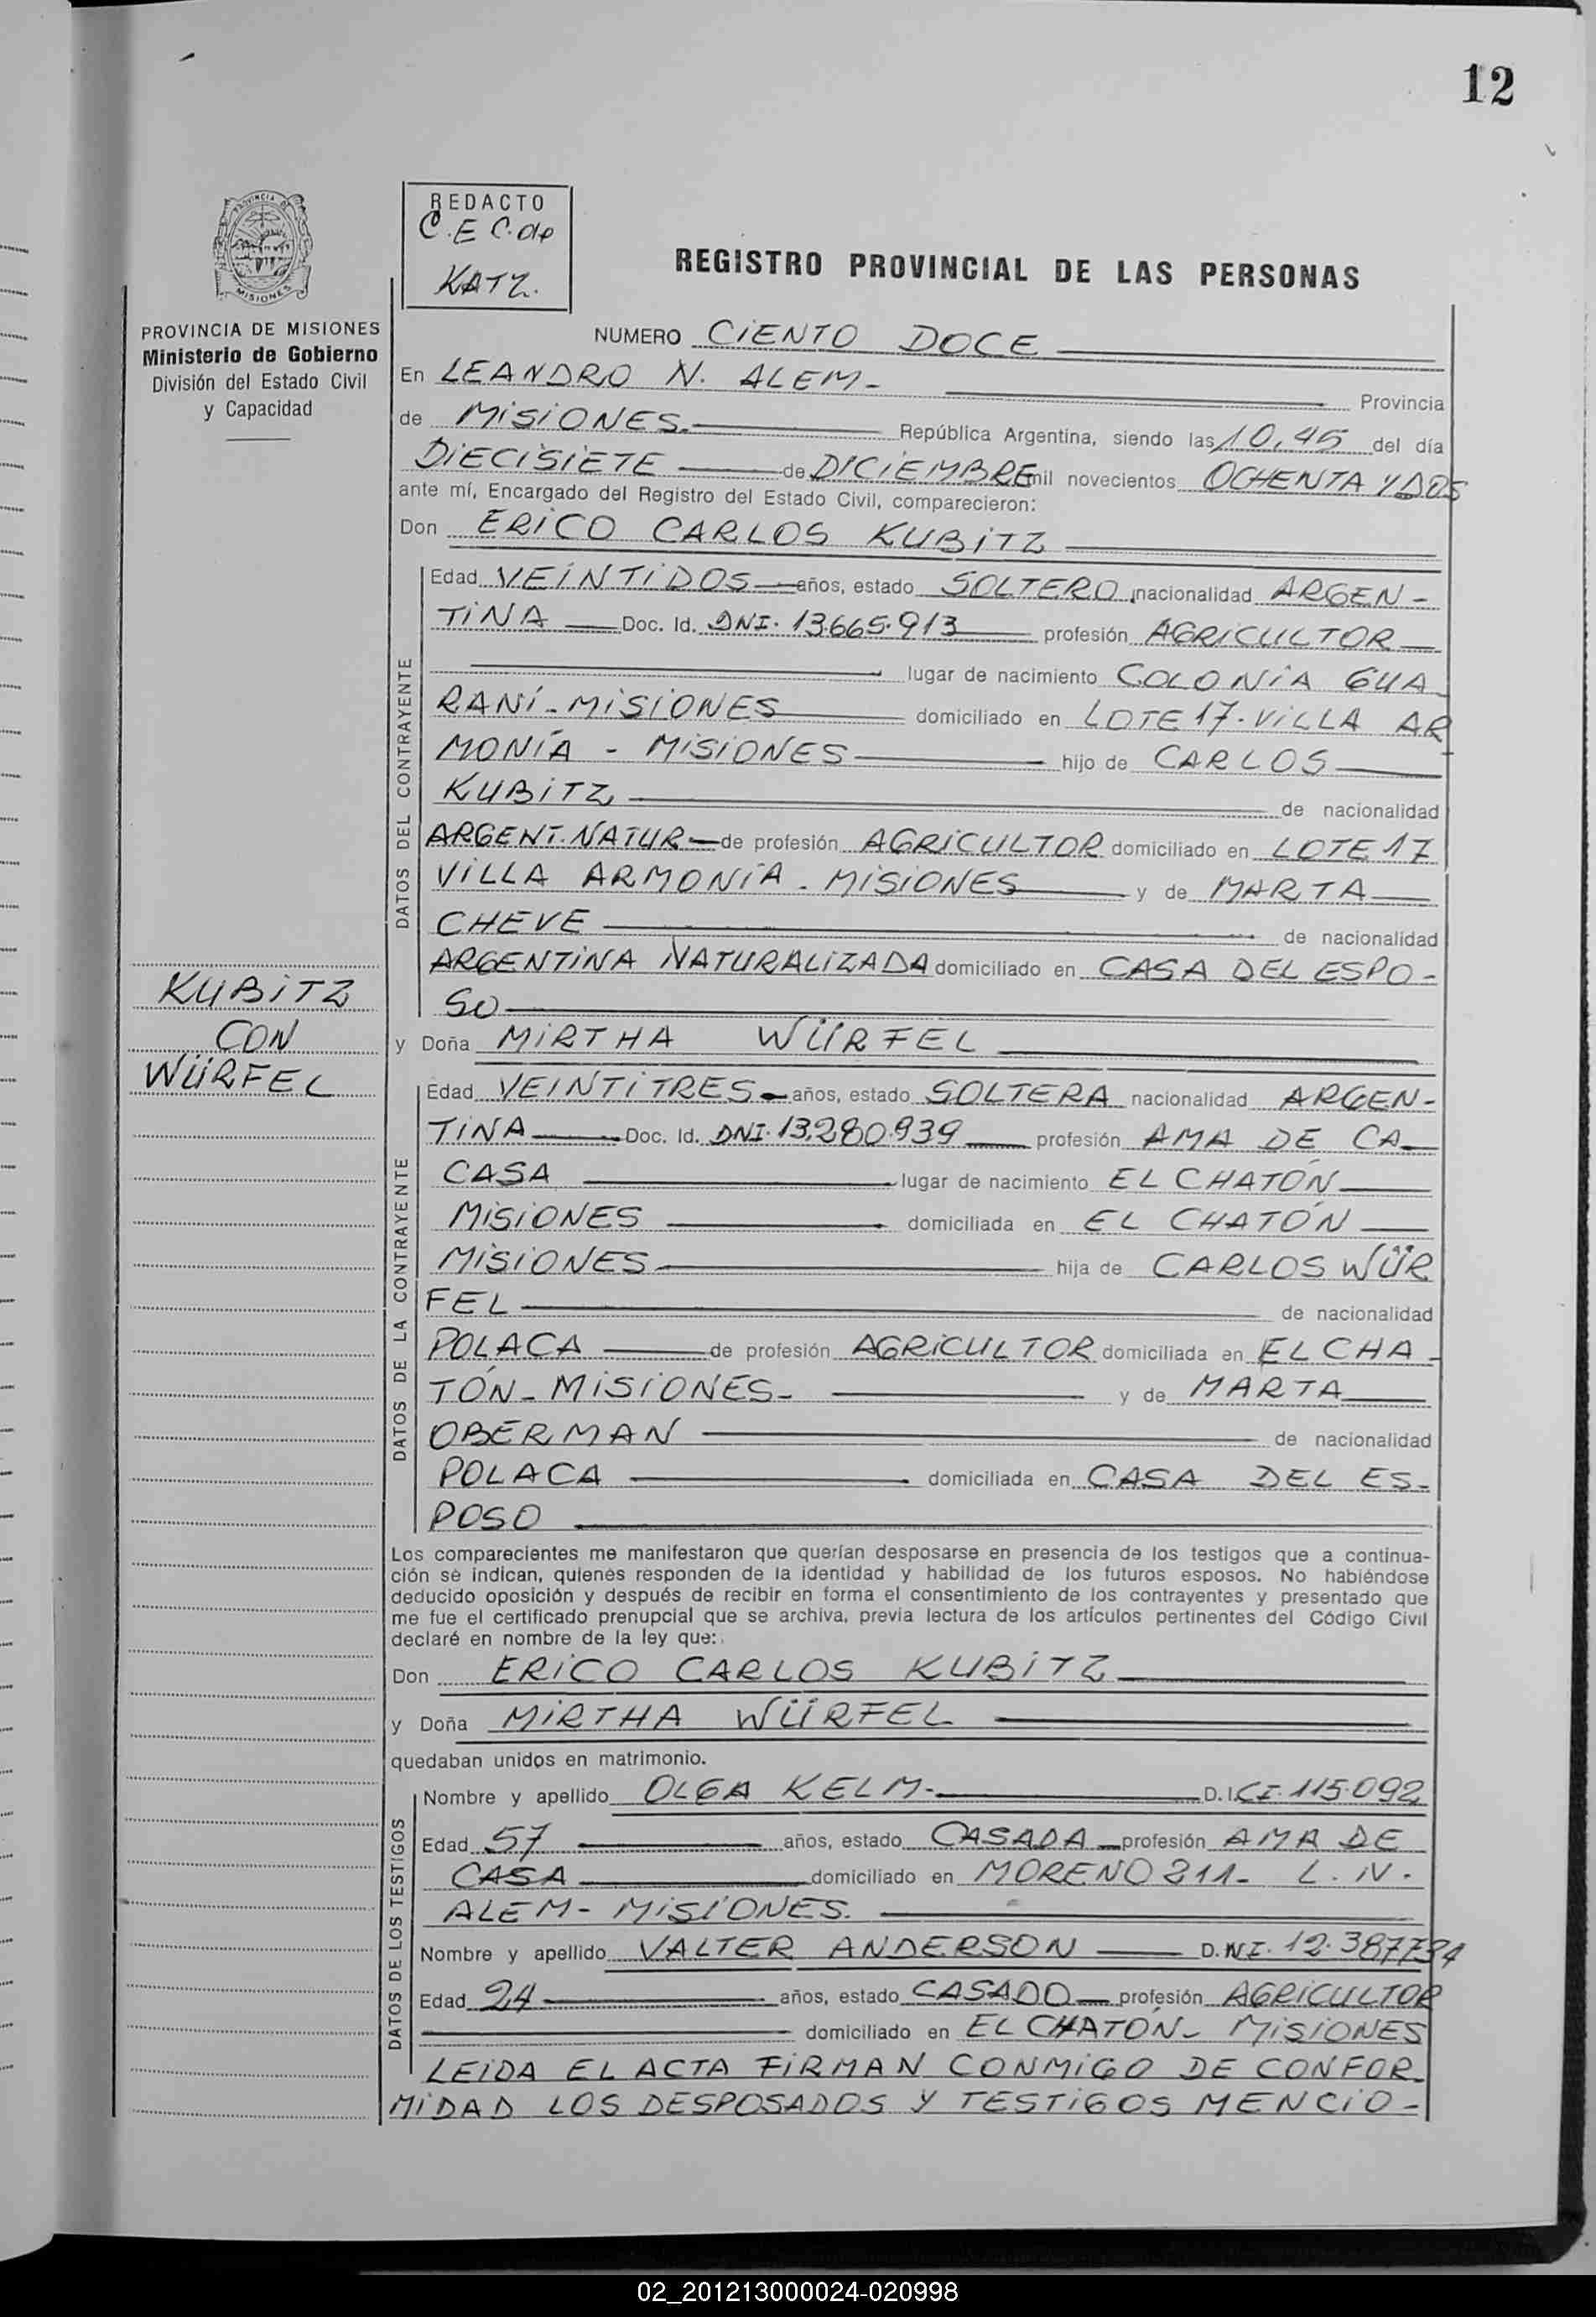 12
PROVINCIA DE
MISIONES
REDACTO
C.E C. de
KATZ.
REGISTRO PROVINCIAL DE LAS PERSONAS
PROVINCIA DE MISIONES
Ministerio de Gobierno
División del Estado Civil
y Capacidad
NUMERO CIENTO DOCE
En LEANDRO N. ALEM- Provincia
de MISIONES.- República Argentina, siendo las 10,45 del día
DIECISIETE de DICIEMBRE mil novecientos OCHENTA Y DOS
ante mí, Encargado del Registro del Estado Civil, comparecieron:
Don ERICO CARLOS KUBITZ
DATOS DEL CONTRAYENTE
Edad VEINTIDOS años, estado SOLTERO nacionalidad ARGEN-
TINA Doc. Id. DNI. 13.665.913 profesión AGRICULTOR
lugar de nacimiento COLONIA GUA
RANÍ-MISIONES domiciliado en LOTE 17. VILLA AR
MONÍA - MISIONES hijo de CARLOS
KUBITZ de nacionalidad
ARGENT. NATUR- de profesión AGRICULTOR domiciliado en LOTE 17
VILLA ARMONÍA - MISIONES y de MARTA
CHEVE de nacionalidad
ARGENTINA NATURALIZADA domiciliado en CASA DEL ESPO-
SO
KUBITZ
CON
WÜRFEL
y Doña MIRTHA WÜRFEL
DATOS DE LA CONTRAYENTE
Edad VEINTITRES años, estado SOLTERA nacionalidad ARGEN-
TINA Doc. Id. DNI. 13.280.939 profesión AMA DE CA
CASA lugar de nacimiento EL CHATÓN
MISIONES domiciliada en EL CHATÓN
MISIONES hija de CARLOS WÜR
FEL de nacionalidad
POLACA de profesión AGRICULTOR domiciliada en EL CHA-
TÓN-MISIONES- y de MARTA
OBERMAN de nacionalidad
POLACA domiciliada en CASA DEL ES-
POSO
Los comparecientes me manifestaron que querían desposarse en presencia de los testigos que a continua-
ción se indican, quienes responden de la identidad y habilidad de los futuros esposos. No habiéndose
deducido oposición y después de recibir en forma el consentimiento de los contrayentes y presentado que
me fue el certificado prenupcial que se archiva, previa lectura de los artículos pertinentes del Código Civil
declaré en nombre de la ley que:
Don ERICO CARLOS KUBITZ
y Doña MIRTHA WÜRFEL
quedaban unidos en matrimonio.
DATOS DE LOS TESTIGOS
Nombre y apellido OLGA KELM- D.I. C.I. 115.092
Edad 57 años, estado CASADA profesión AMA DE
CASA domiciliado en MORENO 211- L. N.
ALEM- MISIONES.
Nombre y apellido VALTER ANDERSON D.N.I. 12.387734
Edad 24 años, estado CASADO profesión AGRICULTOR
domiciliado en EL CHATÓN- MISIONES
LEIDA EL ACTA FIRMAN CONMIGO DE CONFOR-
MIDAD LOS DESPOSADOS Y TESTIGOS MENCIO-
02_201213000024-020998